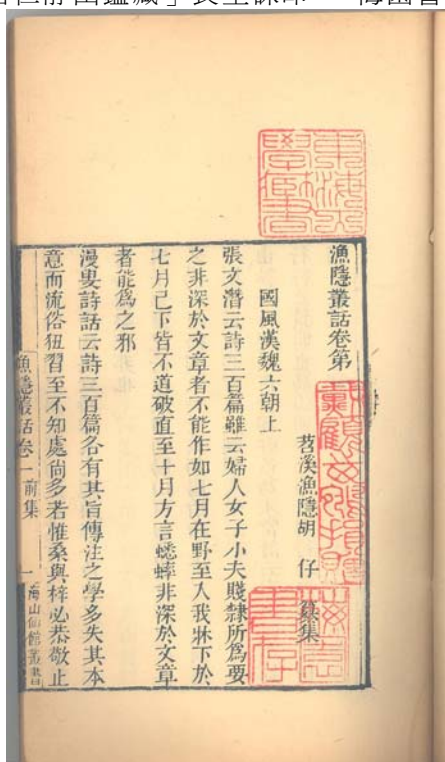 漁隱叢話卷第
苕溪漁隱胡仔纂集
國風漢魏六朝上
張文潛云詩三百篇雖云婦人女子小夫賤隸所爲要
之非深於文章者不能作如七月在野至入我牀下於
七月已下皆不道破直至十月方言蟋蟀非深於文章
者能爲之邪
漫叟詩話云詩三百篇各有其旨傳注之學多失其本
意而流俗狃習至不知處尚多若惟桑與梓必恭敬止
漁隱叢話卷一前集
一
海山仙館叢書
東海大學圖書